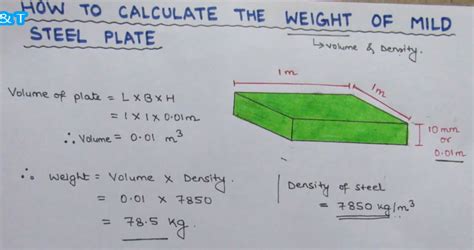 &T
HOW TO CALCULATE THE WEIGHT OF MILD
STEEL PLATE
↳ Volume & Density.
1m
1m
10mm
or
0.01m
Volume of plate = L x B x H
= 1 x 1 x 0.01m
∴ Volume = 0.01 m³
∴ Weight = Volume x Density.
= 0.01 x 7850
= 78.5 kg.
Density of steel
= 7850 kg/m³